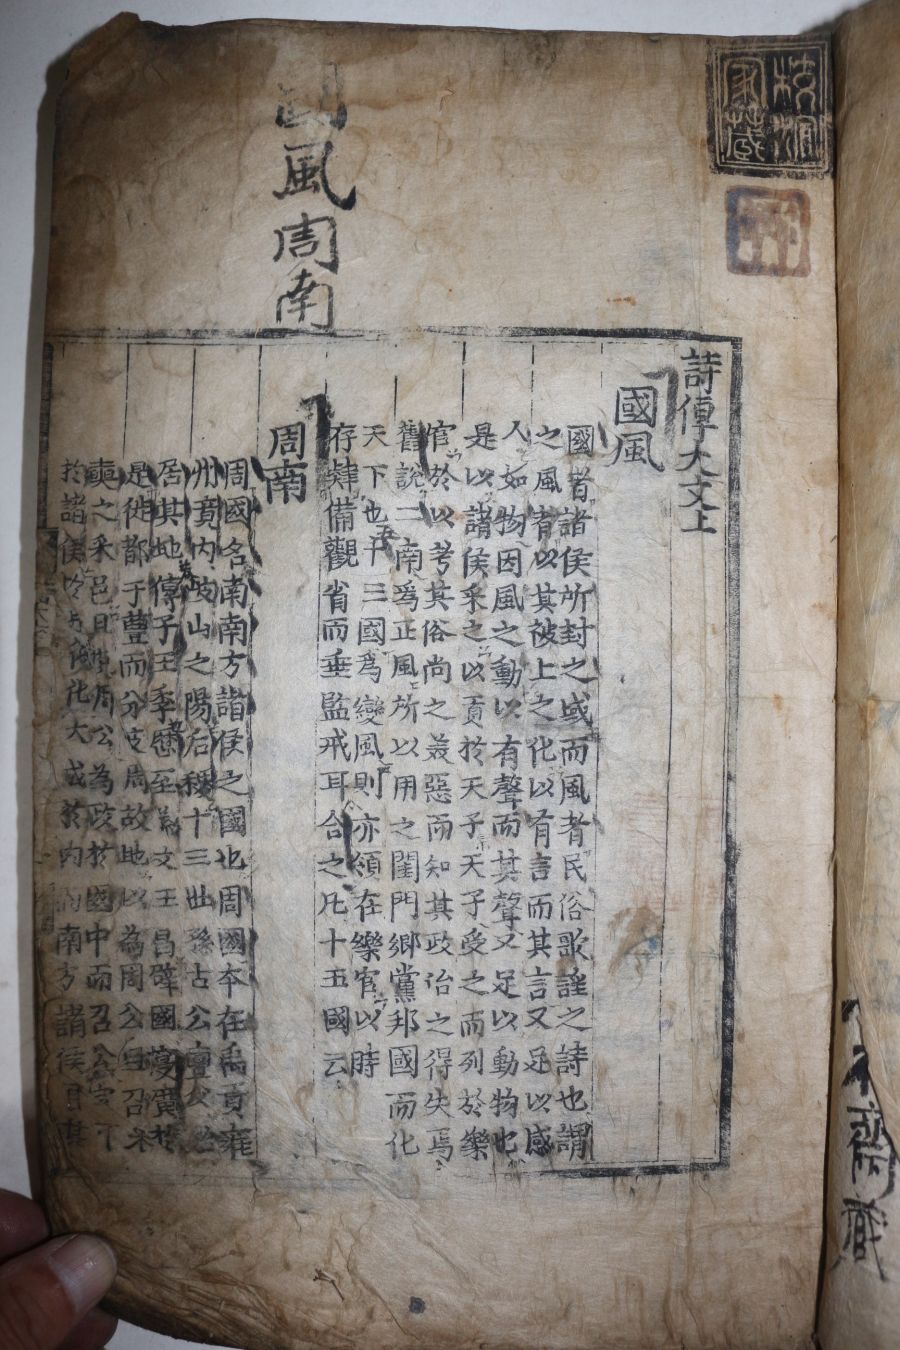 國風周南
家藏
詩傳大文上
國風
國者諸侯所封之域而風者民俗歌謠之詩也謂
之風者以其被上之化以有言而其言又足以感
人如物因風之動以有聲而其聲又足以動物也
是以諸侯采之以貢於天子天子受之而列於樂
官於以考其俗尚之美惡而知其政治之得失焉
舊說二南爲正風所以用之閨門鄕黨邦國而化
天下也十三國爲變風則亦領在樂官以時
存肄備觀省而垂監戒耳合之凡十五國云
周南
周國名南南方諸侯之國也周國本在禹貢雍
州竟內岐山之陽后稷十三世孫古公亶父始
居其地傳子王季歷至文王昌辟國寖廣於
是徙都于豊而分岐周故地以爲周公旦召
奭之采邑且使周公爲政於國中而召公宣
於諸侯於是德化大成於內而南方諸侯
齋藏